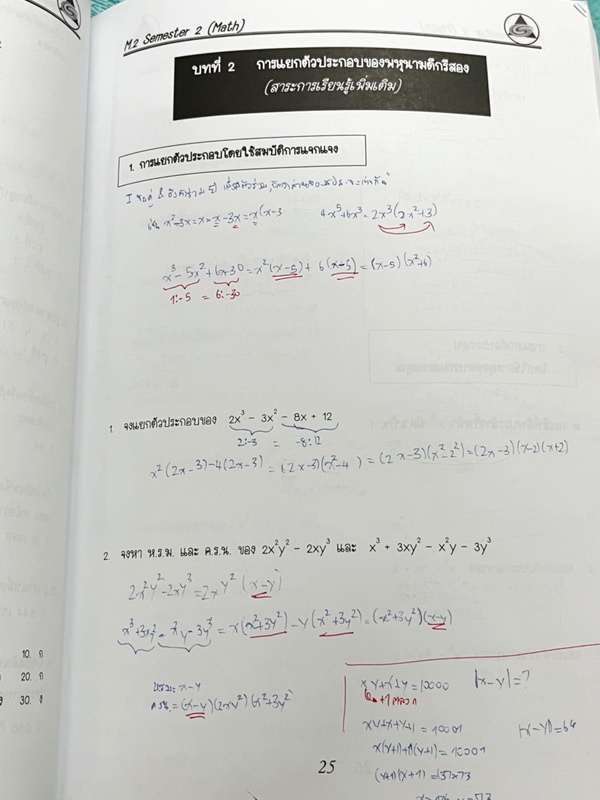 M.2 Semester 2 (Math)
บทที่ 2 การแยกตัวประกอบของพหุนามดีกรีสอง
(สาระการเรียนรู้เพิ่มเติม)
1. การแยกตัวประกอบโดยใช้สมบัติการแจกแจง
4x⁵+6x³ = 2x³(2x²+3)
x³ - 5x² + 6x-30 = x²(x-5) + 6(x-5) = (x-5)(x²+6)
1:-5 = 6:-30
1. จงแยกตัวประกอบของ 2x³ - 3x² - 8x + 12
2:-3 = -8:12
x²(2x-3)-4(2x-3) = (2x-3)(x²-4) = (2x-3)(x²-2²) = (2x-3)(x-2)(x+2)
2. จงหา ห.ร.ม. และ ค.ร.น. ของ 2x²y² - 2xy³ และ x³ + 3xy² - x²y - 3y³
2x²y²-2xy³ = 2xy²(x-y)
x³+3xy² - x²y-3y³ = x(x²+3y²) - y(x²+3y²) = (x²+3y²)(x-y)
x-y
(x-y)(2xy²)(x²+3y²)
xy+x+y = 10000 |x-y| = ?
xy+x+y+1 = 10001
|x-y| = 64
x(y+1)+1(y+1) = 10001
(y+1)(x+1) = 137×73
10. ก
20. ก
30. ง
25